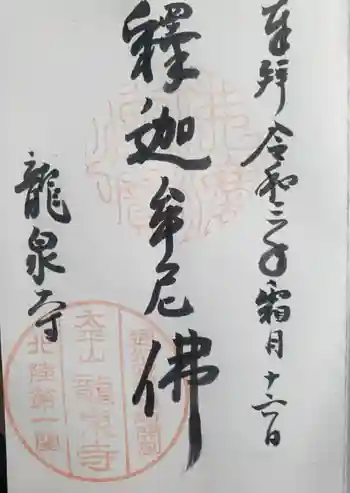 奉拜 令和三年 霜月 十六日
釋迦牟尼佛
龍泉寺
太平山 龍泉寺
北陸第一圓